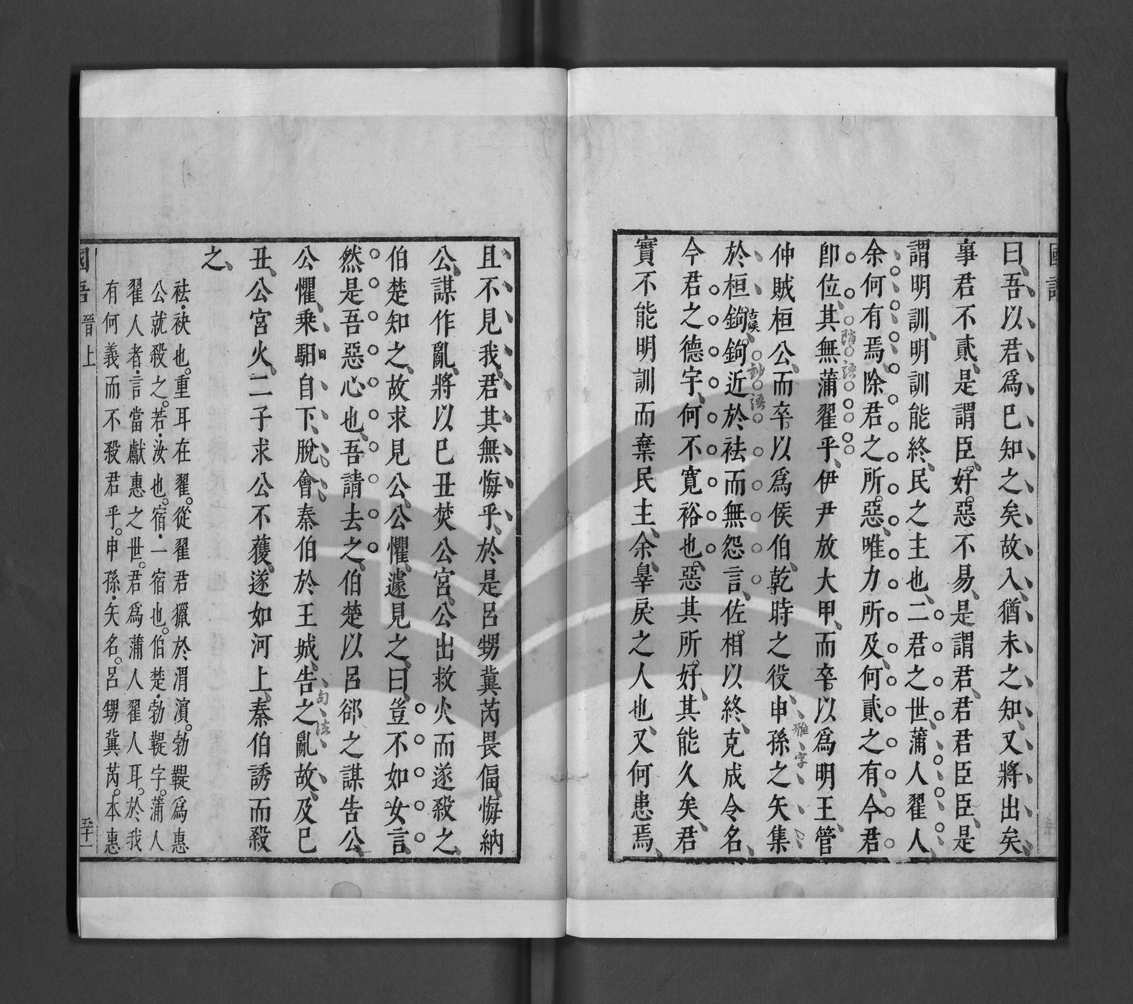 國語
曰吾以君爲已知之矣故入猶未之知又將出矣
事君不貳是謂臣好惡不易是謂君君君臣臣是
謂明訓明訓能終民之主也二君之世蒲人翟人
余何有焉除君之所惡唯力所及何貳之有今君
卽位其無蒲翟乎伊尹放大甲而卒以爲明王管
仲賊桓公而卒以爲侯伯乾時之役申孫之矢集
於桓鉤鉤近於袪而無怨言佐相以終克成令名
今君之德宇何不寬裕也惡其所好其能久矣君
實不能明訓而棄民主余辠戾之人也又何患焉
雅字
句法
且不見我君其無悔乎於是呂甥冀芮畏偪悔納
公謀作亂將以巳丑焚公宮公出救火而遂殺之
伯楚知之故求見公公懼遽見之曰豈不如女言
然是吾惡心也吾請去之伯楚以呂郤之謀告公
公懼乘馹自下脫會秦伯於王城告之亂故及巳
丑公宮火二子求公不獲遂如河上秦伯誘而殺
之
袪袂也重耳在翟從翟君獵於渭濱勃鞮爲惠
公就殺之若汝也宿一宿也伯楚勃鞮字蒲人
翟人者言當獻惠之世君爲蒲人翟人耳於我
有何義而不殺君乎申孫矢名呂甥冀芮本惠
國語 晉上